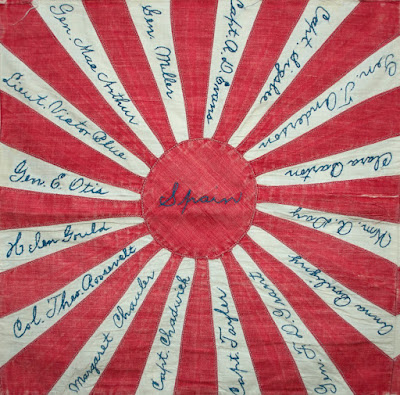 Gen. Miller
Capt. R. D. Evans
Capt. Sigsbee
Gen. T. Anderson
Clara Barton
Wm. R. Day
Anna Bouligny
Gen. F. D. Grant
Capt
Capt. Chadwick
Margaret Chanler
Col. Theo. Roosevelt
Helen Gould
Gen. E. Otis
Lieut. Victor Blue
Gen. Mac Arthur
Spain